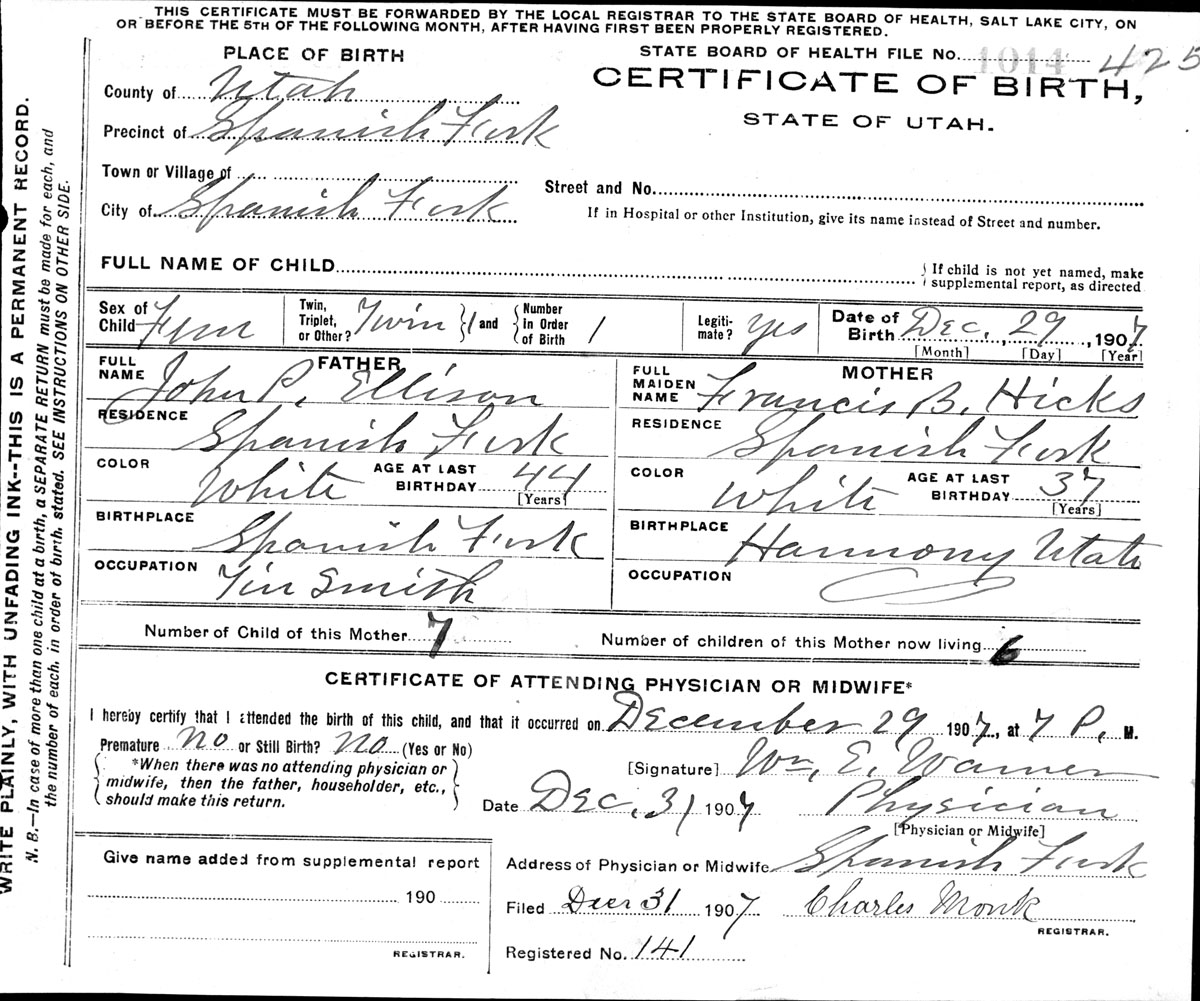 THIS CERTIFICATE MUST BE FORWARDED BY THE LOCAL REGISTRAR TO THE STATE BOARD OF HEALTH, SALT LAKE CITY, ON
OR BEFORE THE 5TH OF THE FOLLOWING MONTH, AFTER HAVING FIRST BEEN PROPERLY REGISTERED.
WRITE PLAINLY, WITH UNFADING INK--THIS IS A PERMANENT RECORD.
N. B.—In case of more than one child at a birth, a SEPARATE RETURN must be made for each, and
the number of each, in order of birth, stated. SEE INSTRUCTIONS ON OTHER SIDE.
STATE BOARD OF HEALTH FILE No. 1014 425
CERTIFICATE OF BIRTH,
STATE OF UTAH.
PLACE OF BIRTH
County of Utah
Precinct of Spanish Fork
Town or Village of
City of Spanish Fork
Street and No.
If in Hospital or other Institution, give its name instead of Street and number.
FULL NAME OF CHILD
If child is not yet named, make
supplemental report, as directed
Sex of Child Fem
Twin, Triplet, or Other? Twin 1 and Number In Order of Birth 1
Legitimate? Yes
Date of Birth Dec. 29, 1907
[Month] [Day] [Year]
FATHER
FULL NAME John P. Ellison
RESIDENCE Spanish Fork
COLOR White AGE AT LAST BIRTHDAY 44
[Years]
BIRTHPLACE Spanish Fork
OCCUPATION Tin Smith
MOTHER
FULL MAIDEN NAME Francis B. Hicks
RESIDENCE Spanish Fork
COLOR White AGE AT LAST BIRTHDAY 37
[Years]
BIRTHPLACE Harmony Utah
OCCUPATION
Number of Child of this Mother 7 Number of children of this Mother now living 6
CERTIFICATE OF ATTENDING PHYSICIAN OR MIDWIFE*
I hereby certify that I attended the birth of this child, and that it occurred on December 29 1907, at 7 P. M.
Premature no or Still Birth? no (Yes or No)
*When there was no attending physician or
midwife, then the father, householder, etc.,
should make this return.
[Signature] Wm. E. Warner
Date Dec. 31 1907 Physician
[Physician or Midwife]
Address of Physician or Midwife Spanish Fork
Filed Decr 31 1907 Charles Monk
REGISTRAR.
Registered No. 141
Give name added from supplemental report
190
REGISTRAR.